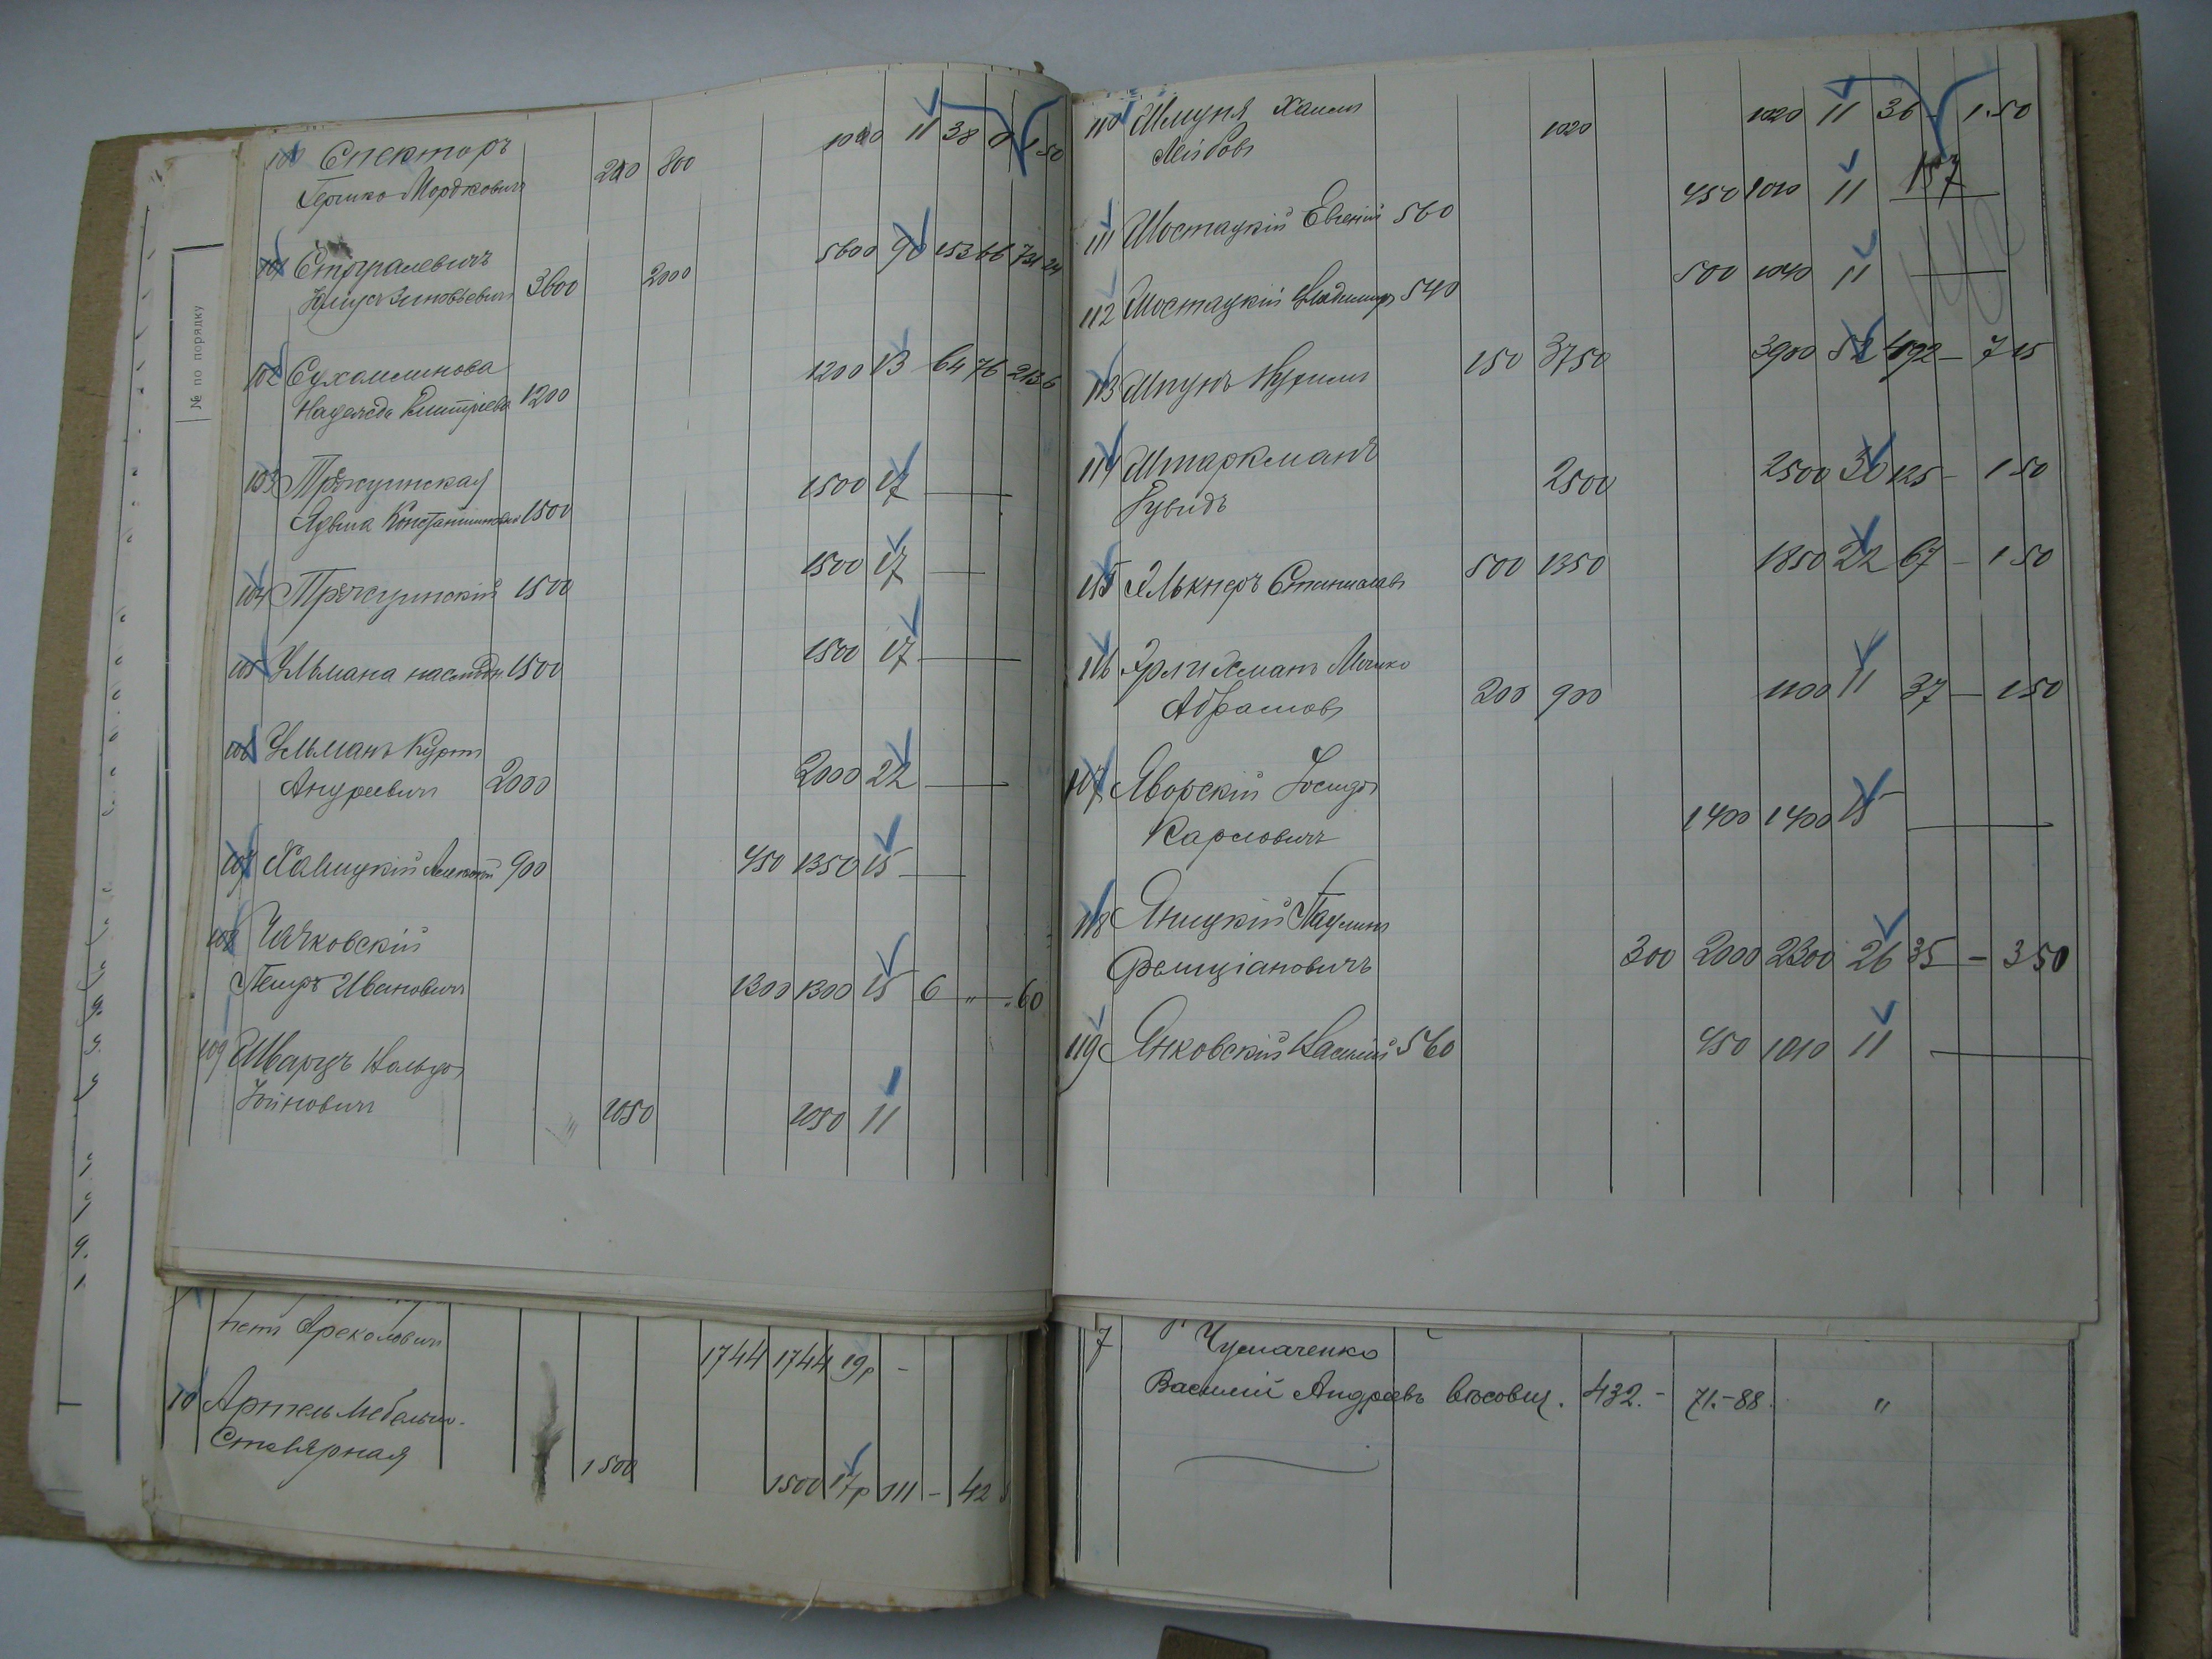 № по порядку
100 Спекторъ 1000 11 38 0 1 50
Гершко Мордковичъ 200 800
101 Стогралевичъ 5600 90 153 66 731 24
Юлiусъ Зиновьевичъ 3600 2000
102 Сухомлинова 1200 13 64 76 213 6
Надежда Дмитрiевна 1200
103 1500 17 —
Ядвига Константиновна 1500
104 1500 1500 17 —
105 Ульмана наслѣдн. 1500 1500 17 —
106 Ульманъ Куртъ
Андреевичъ 2000 2000 22 —
107 Халицкiй Алексѣй 900 450 1350 15 —
108 Чачковскiй
Петръ Ивановичъ 1300 1300 15 6 " 60
109 Шварцъ
1050 1050 11
Арекловичъ
1744 1744 19р -
10 Артель Мебельно-
Столярная 1500 1500 17р 111 - 42
110 Шмуня Хаимъ 1020 1020 11 36 - 1.50
Лейбовъ
111 Шостацкiй Евгенiй 560 450 1010 11 157
112 Шостацкiй Владимiръ 540 500 1040 11 —
113 Шпунъ Нухимъ 150 3750 3900 52 492 — 7 15
114 Штаркманъ 2500 2500 30 125 - 1 50
Рувидъ
115 Элькнеръ Станиславъ 500 1350 1850 22 67 - 1 50
116 Эрлихманъ Мошко
Абрамовъ 200 900 1100 11 37 — 1 50
117 Яворскiй Iосифъ
Карловичъ 1400 1400 15 —
118 Яницкiй Паулинъ
Фелицiановичъ 300 2000 2300 26 35 - 3 50
119 Янковскiй Василiй 560 450 1010 11 —
7 Чумаченко
Василiй Андреевъ 432.- 71.-88. "